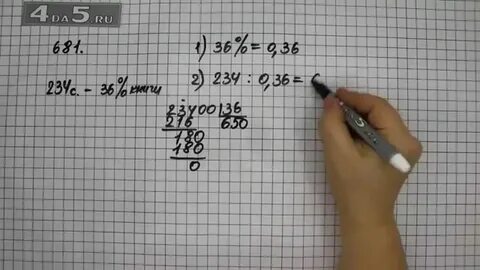 4DA5.RU
681.
234с. – 36% книги
1) 36% = 0,36
2) 234 : 0,36 = 6
23400 36
216 650
180
180
0